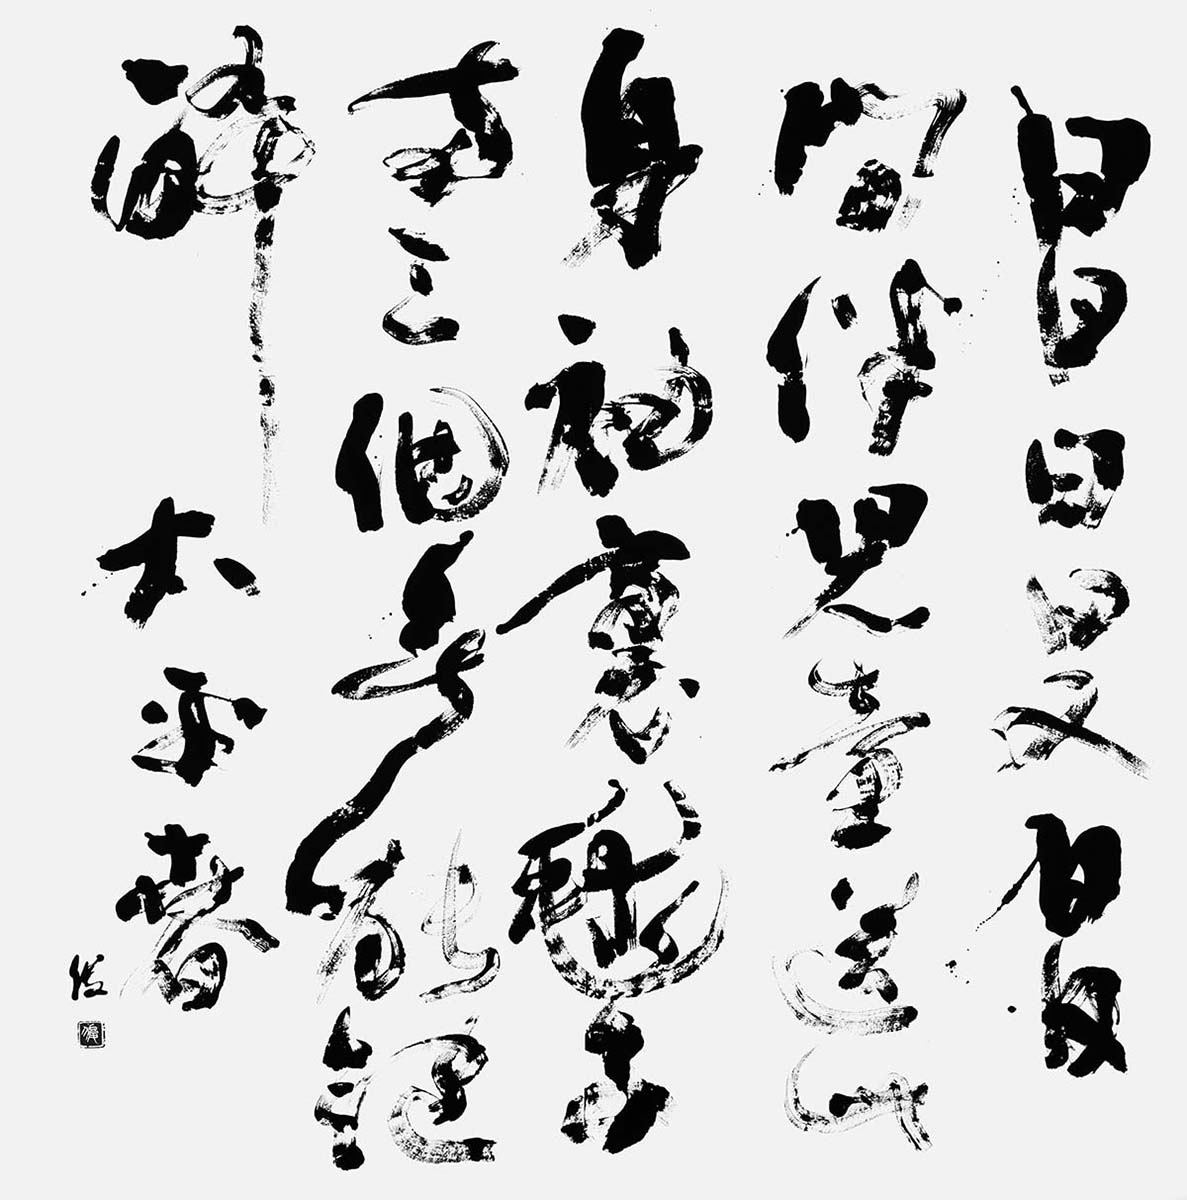 日日日日又日日
間伴児童送此
身袖裏毬子
両三個無能飽
酔太平春
俊